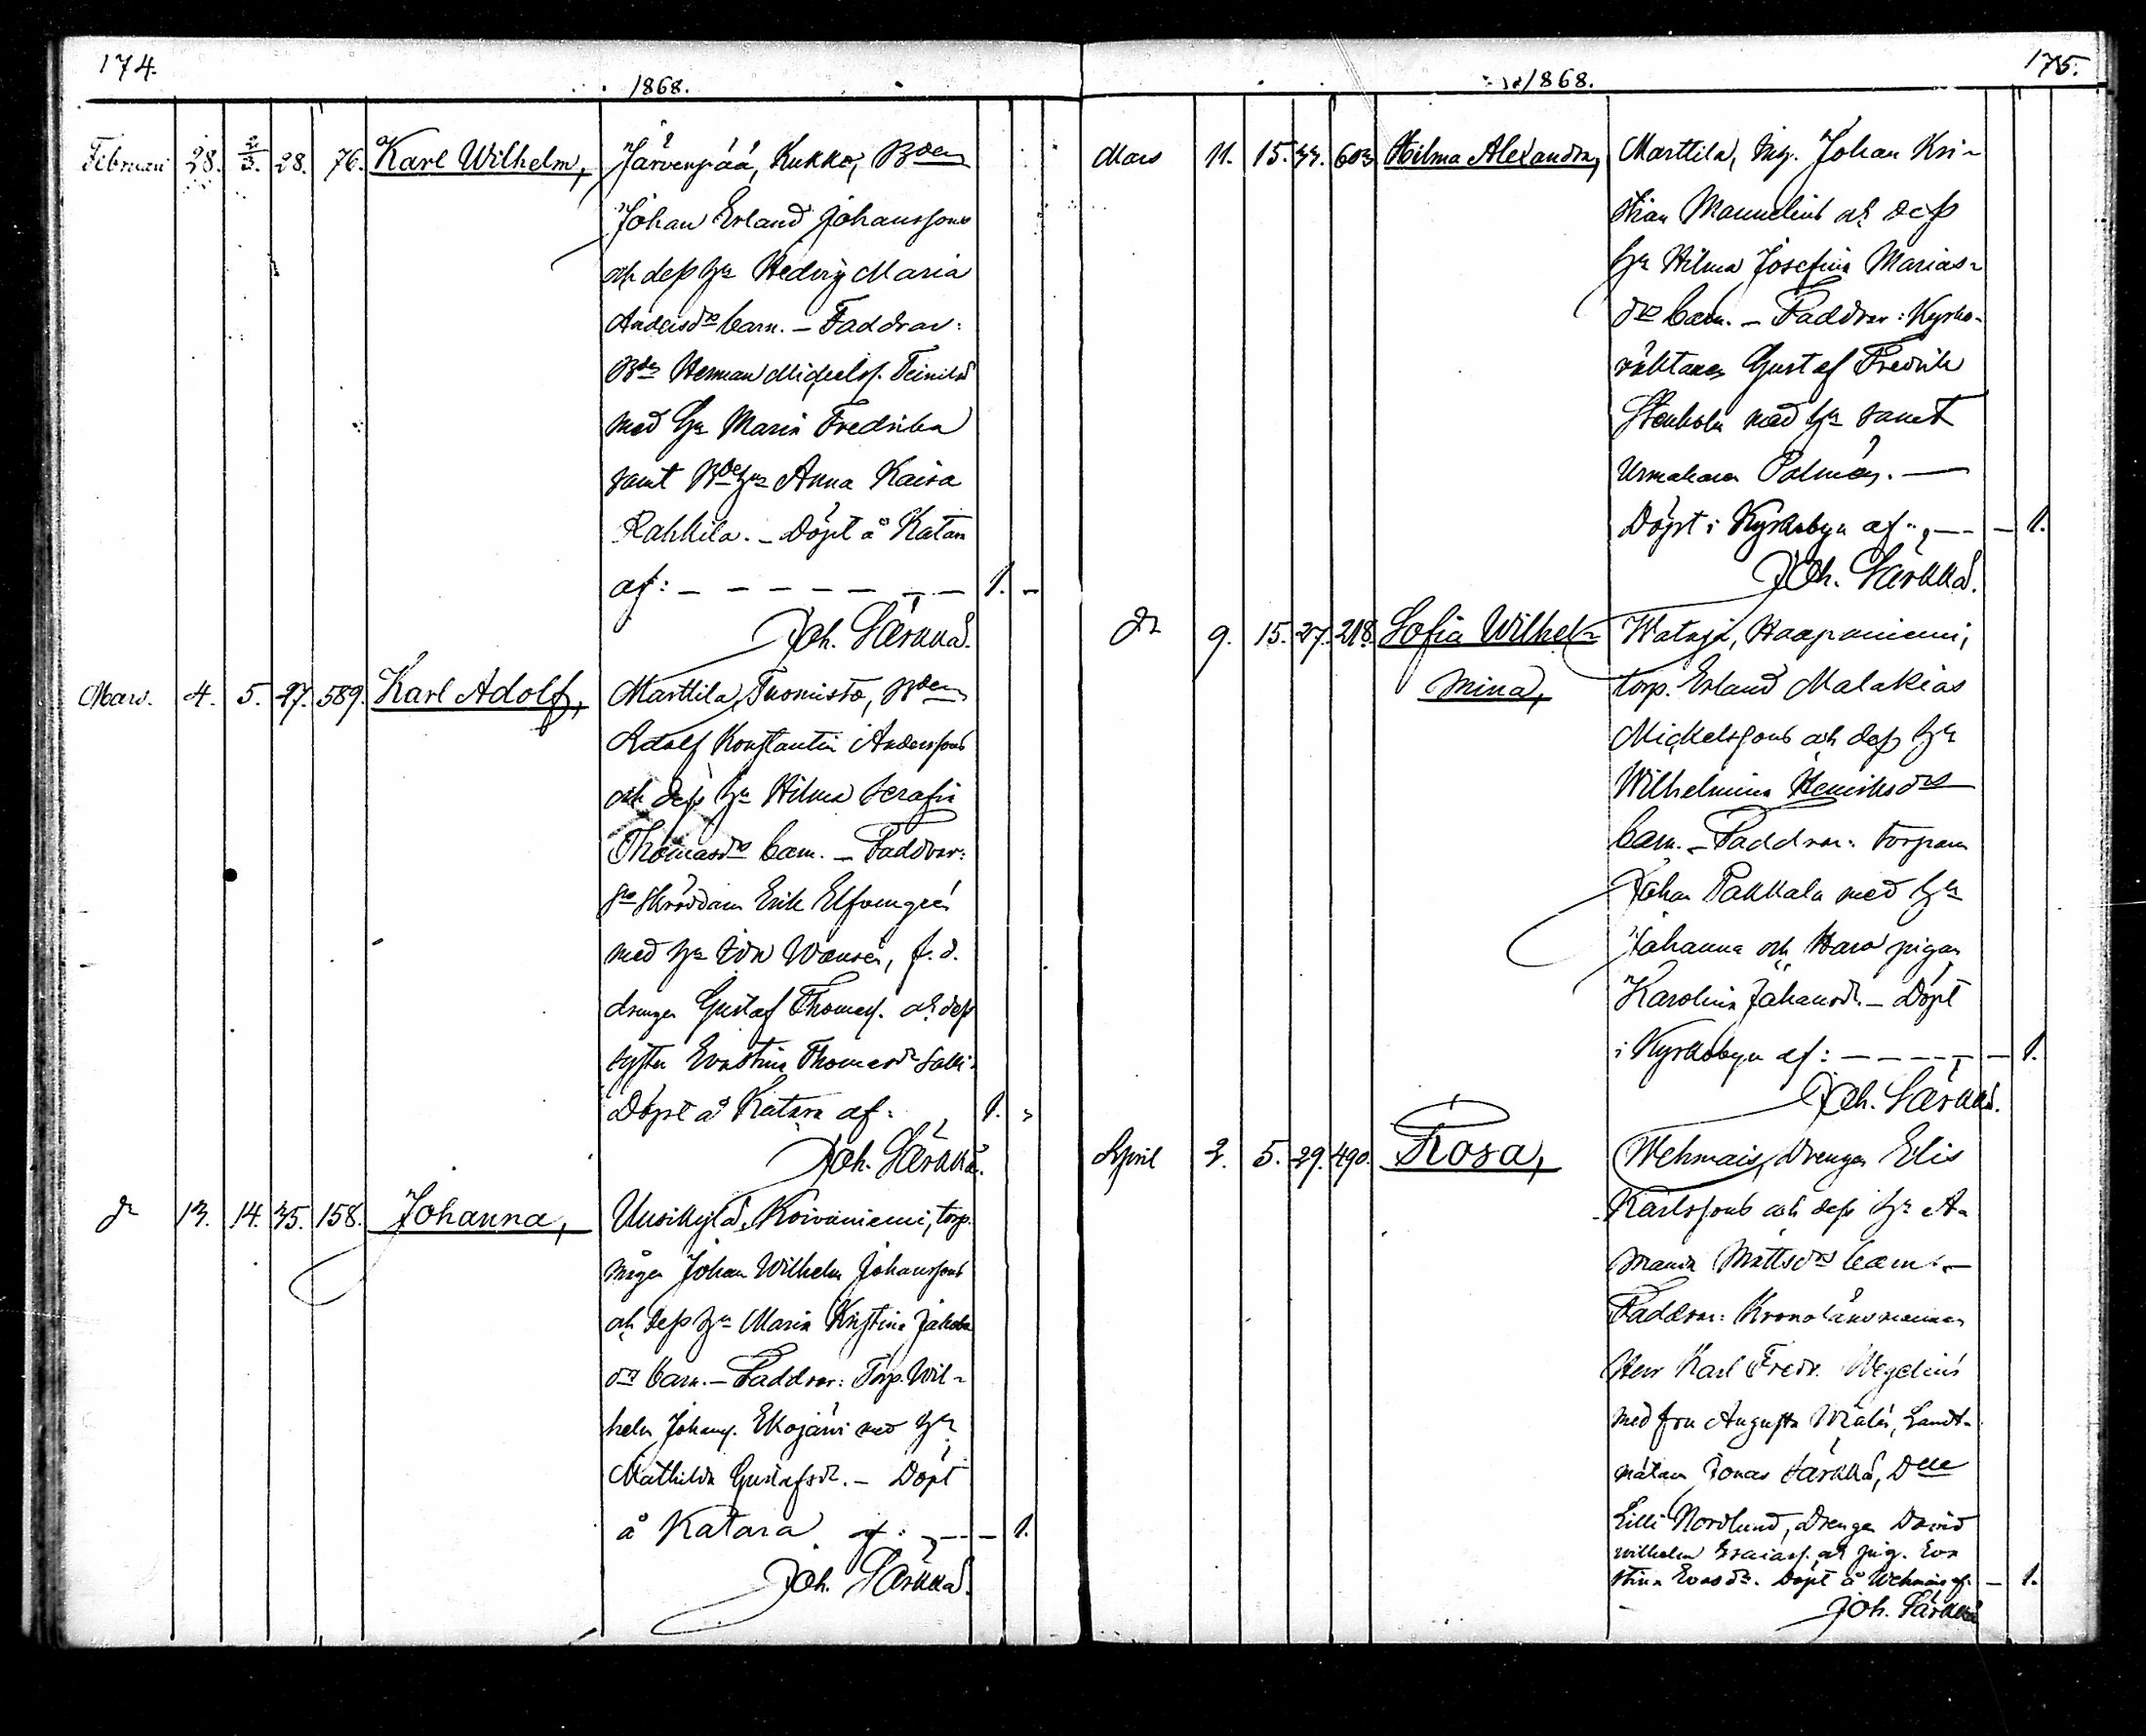 174.
1868.
Februari 28. 2/3. 28. 76. Karl Wilhelm, Järvenpää, Kukko, Bden
Johan Erland Johanssons
och dess hu Hedvig Maria
Andersdrs barn. – Faddrar:
Bden Herman Michelss. Teinilä
med hu Maria Fredrika
samt Bdehu Anna Kaisa
Rahkila. – Döpt å Katara
af: – – – – – – – 1. –
Joh. Särkkä.
Mars. 4. 5. 27. 589. Karl Adolf, Marttila, Tuomisto, Bden
Adolf Konstantin Anderssons
och dess hu Hilma Serafia
Thomasdrs barn. – Faddrar:
skräddaren Erik Elfvengrén
med hu Ida Wansén, f.d.
drengen Gustaf Thomass. och dess
syster Evastina Thomasdr
Döpt å Katara af: 1.
Joh. Särkkä.
dr 13. 14. 35. 158. Johanna, Uusikylä, Koivuniemi, torp.
mågen Johan Wilhelm Johanssons
och dess hu Maria Kristina Jakobs
drs barn. – Faddrar: Torp. Wil-
helm Johanss. Ekojärvi med hu
Mathilda Gustafsdr. – Döpt
å Katara af: – – – 1.
Joh. Särkkä.
175.
1868.
Mars 11. 15. 33. 603 Hilma Alexandra, Marttila, Johan Kri-
stian Mannelins och dess
hu Hilma Josefina Marias-
drs barn. – Faddrar: Kyrko-
väktaren Gustaf Fredrik
Stenholm med hu samt
Urmakaren Palmén. –
Döpt i Kyrkobyn af: – – – 1.
Joh. Särkkä.
dr 9. 15. 27. 218. Sofia Wilhel- Wataja, Haapaniemi,
mina, torp. Erland Malakias
Mickelssons och dess hu
Wilhelmina Henriksdrs
barn. – Faddrar: torparen
Johan Pakkala med hu
Johanna och pigan
Karolina Johansdr. – Döpt
i Kyrkobyn af: – – – – – – 1.
Joh. Särkkä.
April 2. 5. 29. 490. Rosa, Wehmais, Drengen Elis
Karlssons och dess hu A-
manda Mattsdrs barn. –
Faddrar: Kronolänsmannen
Herr Karl Fredr. Wegelius
med fru Augusta, Landt-
mätaren Jonas Särkkä, Dlle
Lilli Nordlund, Drengen David
Wilhelm Esaiass. och pig. Eva
stina Evasdr. Döpt å Wehmais af: – 1.
Joh. Särkkä